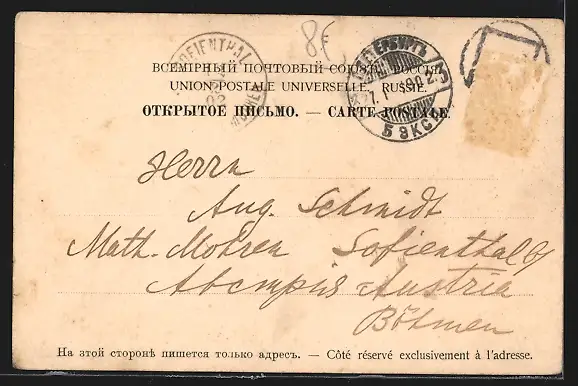 8f
SOFIENTHAL
ПЕТЕРБУРГЪ
ВСЕМІРНЫЙ ПОЧТОВЫЙ СОЮЗЪ. РОССІЯ.
UNION POSTALE UNIVERSELLE. RUSSIE.
ОТКРЫТОЕ ПИСЬМО. — CARTE POSTALE.
5 ЭКСП
Herrn
Aug. Schmidt
Math. Mohren Sofienthal b/
Австрія Austria
Böhmen
На этой сторонѣ пишется только адресъ. — Côté réservé exclusivement à l'adresse.